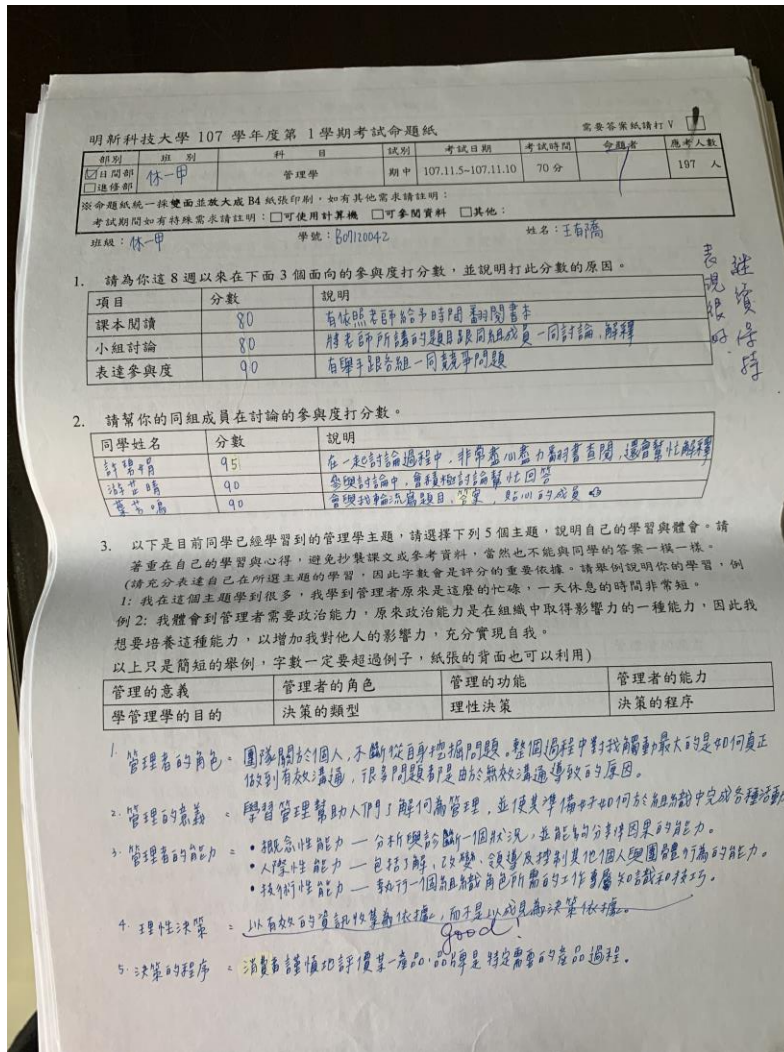 明新科技大學 107 學年度第 1 學期考試命題紙
需要答案紙請打 V
部別 班別 科目 試別 考試日期 考試時間 命題者 應考人數
☑日間部 □進修部 休一甲 管理學 期中 107.11.5-107.11.10 70 分 197 人
※命題紙統一採雙面並放大成 B4 紙張印刷,如有其他需求請註明:
考試期間如有特殊需求請註明:□可使用計算機 □可參閱資料 □其他:
班級:休一甲 學號:B07120042 姓名:王郁喬
1. 請為你這 8 週以來在下面 3 個面向的參與度打分數,並說明打此分數的原因。
項目 分數 說明
課本閱讀 80 有依照老師給予時間翻閱書本
小組討論 80 將老師所講的題目跟同組成員一同討論,解釋
表達參與度 90 有舉手跟各組一同競爭問題
表現很好.
繼續保持
2. 請幫你的同組成員在討論的參與度打分數。
同學姓名 分數 說明
許 95 在一起討論過程中,非常盡心盡力翻書查閱,還會幫忙解釋
游芷晴 90 參與討論中,會積極討論幫忙回答
葉 90 會與我輪流寫題目、答案,貼心的成員
3. 以下是目前同學已經學習到的管理學主題,請選擇下列 5 個主題,說明自己的學習與體會。請
著重在自己的學習與心得,避免抄襲課文或參考資料,當然也不能與同學的答案一模一樣。
(請充分表達自己在所選主題的學習,因此字數會是評分的重要依據。請舉例說明你的學習,例
1: 我在這個主題學到很多,我學到管理者原來是這麼的忙碌,一天休息的時間非常短。
例 2: 我體會到管理者需要政治能力,原來政治能力是在組織中取得影響力的一種能力,因此我
想要培養這種能力,以增加我對他人的影響力,充分實現自我。
以上只是簡短的舉例,字數一定要超過例子,紙張的背面也可以利用)
管理的意義 管理者的角色 管理的功能 管理者的能力
學管理學的目的 決策的類型 理性決策 決策的程序
1. 管理者的角色:團隊關於個人,不斷從自身挖掘問題。整個過程中對我觸動最大的是如何真正
做到有效溝通,很多問題都是由於無效溝通導致的原因。
2. 管理的意義:學習管理幫助人們了解何為管理,並使其準備好如何於組織中完成各種活動
3. 管理者的能力:•概念性能力—分析與診斷一個狀況,並能夠分辨因果的能力。
•人際性能力—包括了解,改變,領導及控制其他個人與團體行為的能力。
•技術性能力—執行一個組織角色所需的工作專屬知識和技巧。
4. 理性決策:以有效的資訊收集為依據,而不是以成見為決策依據。
good!
5. 決策的程序:消費者謹慎地評價某一產品.品牌是特定需要的產品過程。